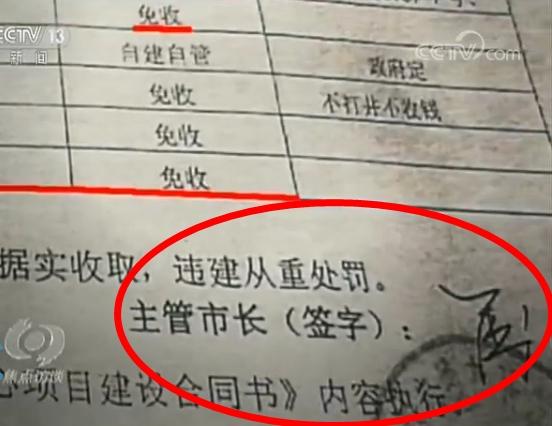 CCTV 13
新闻
CCTV.com
免收
自建自管
政府定
免收
不打井不收钱
免收
免收
据实收取，违建从重处罚。
主管市长（签字）：
焦点访谈
项目建设合同书》内容执行